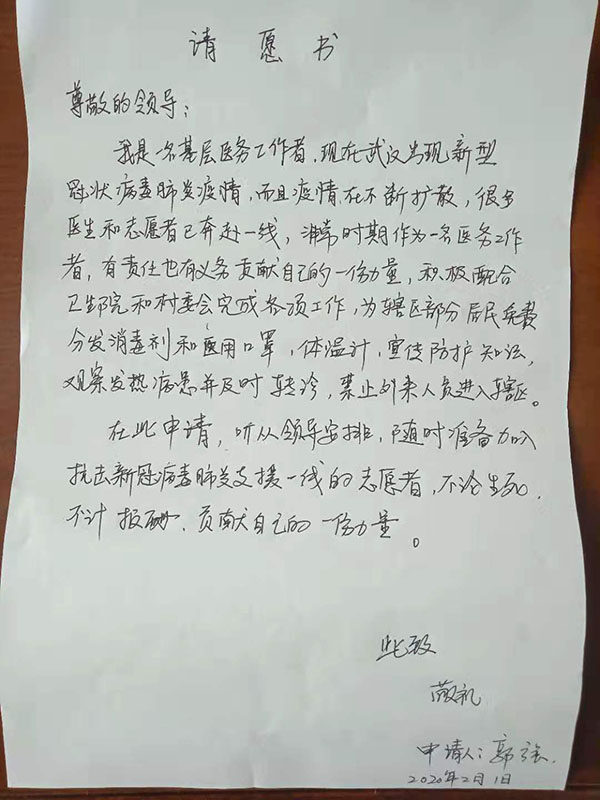 请愿书
尊敬的领导:
我是一名基层医务工作者,现在武汉出现新型
冠状病毒肺炎疫情,而且疫情在不断扩散,很多
医生和志愿者已奔赴一线,非常时期作为一名医务工作
者,有责任也有义务贡献自己的一份力量,积极配合
卫生院和村委会完成各项工作,为辖区部分居民免费
分发消毒剂和医用口罩,体温计,宣传防护知识,
观察发热病患并及时转诊,禁止外来人员进入辖区。
在此申请,听从领导安排,随时准备加入
抗击新冠病毒肺炎支援一线的志愿者,不论生死,
不计报酬、贡献自己的一份力量。
此致
敬礼
申请人:郭强.
2020年2月1日